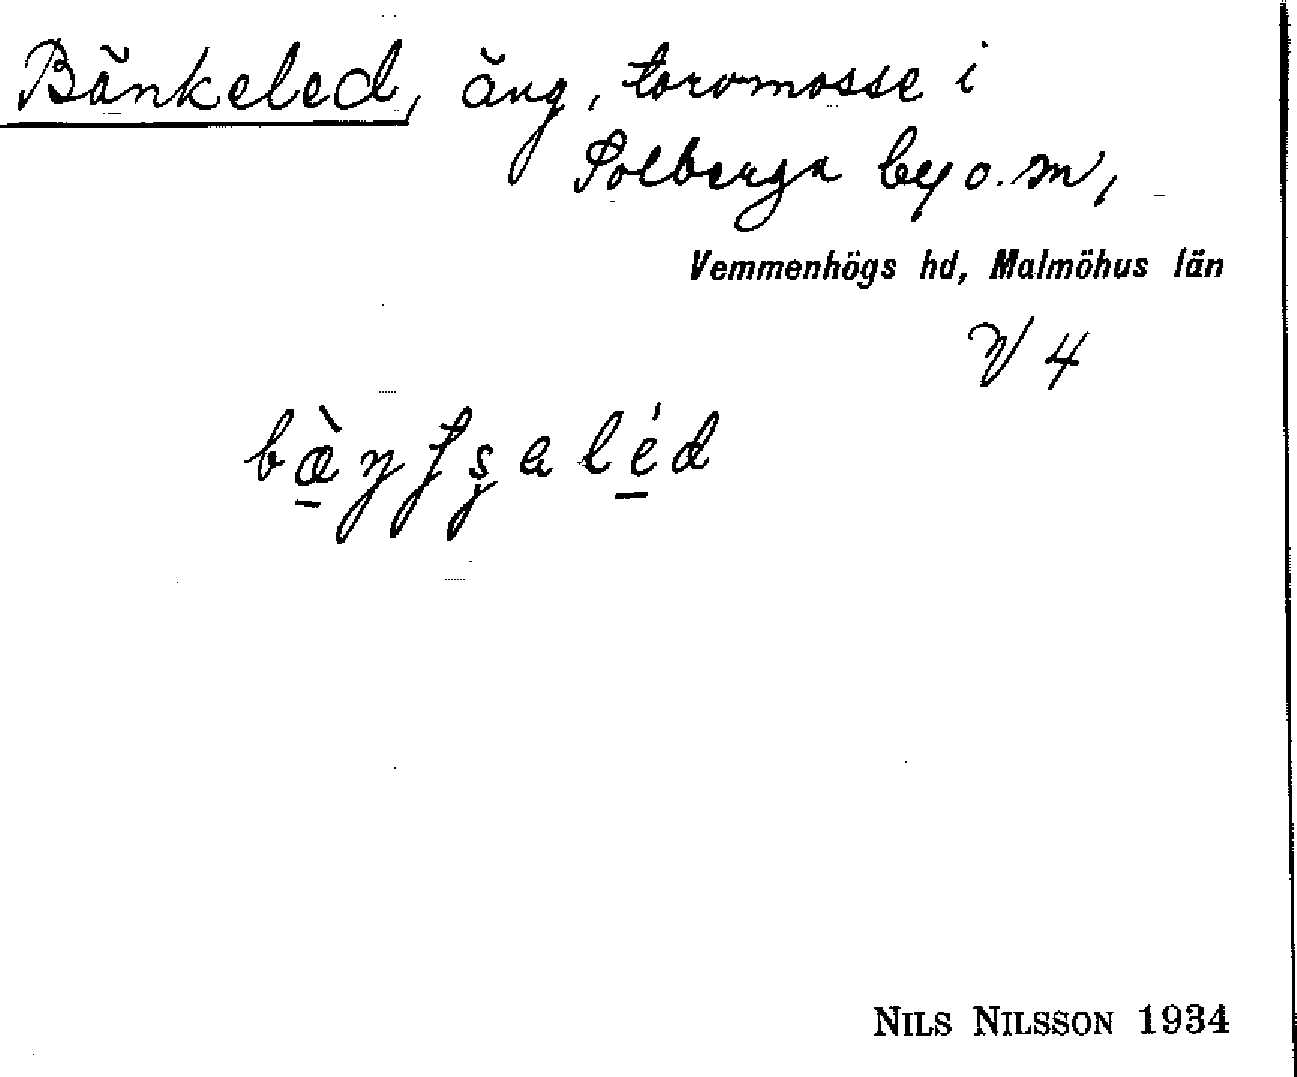 Bänkeled, äng, torvmosse i
Solberga by o. sn,
Vemmenhögs hd, Malmöhus län
V 4
NILS NILSSON 1934